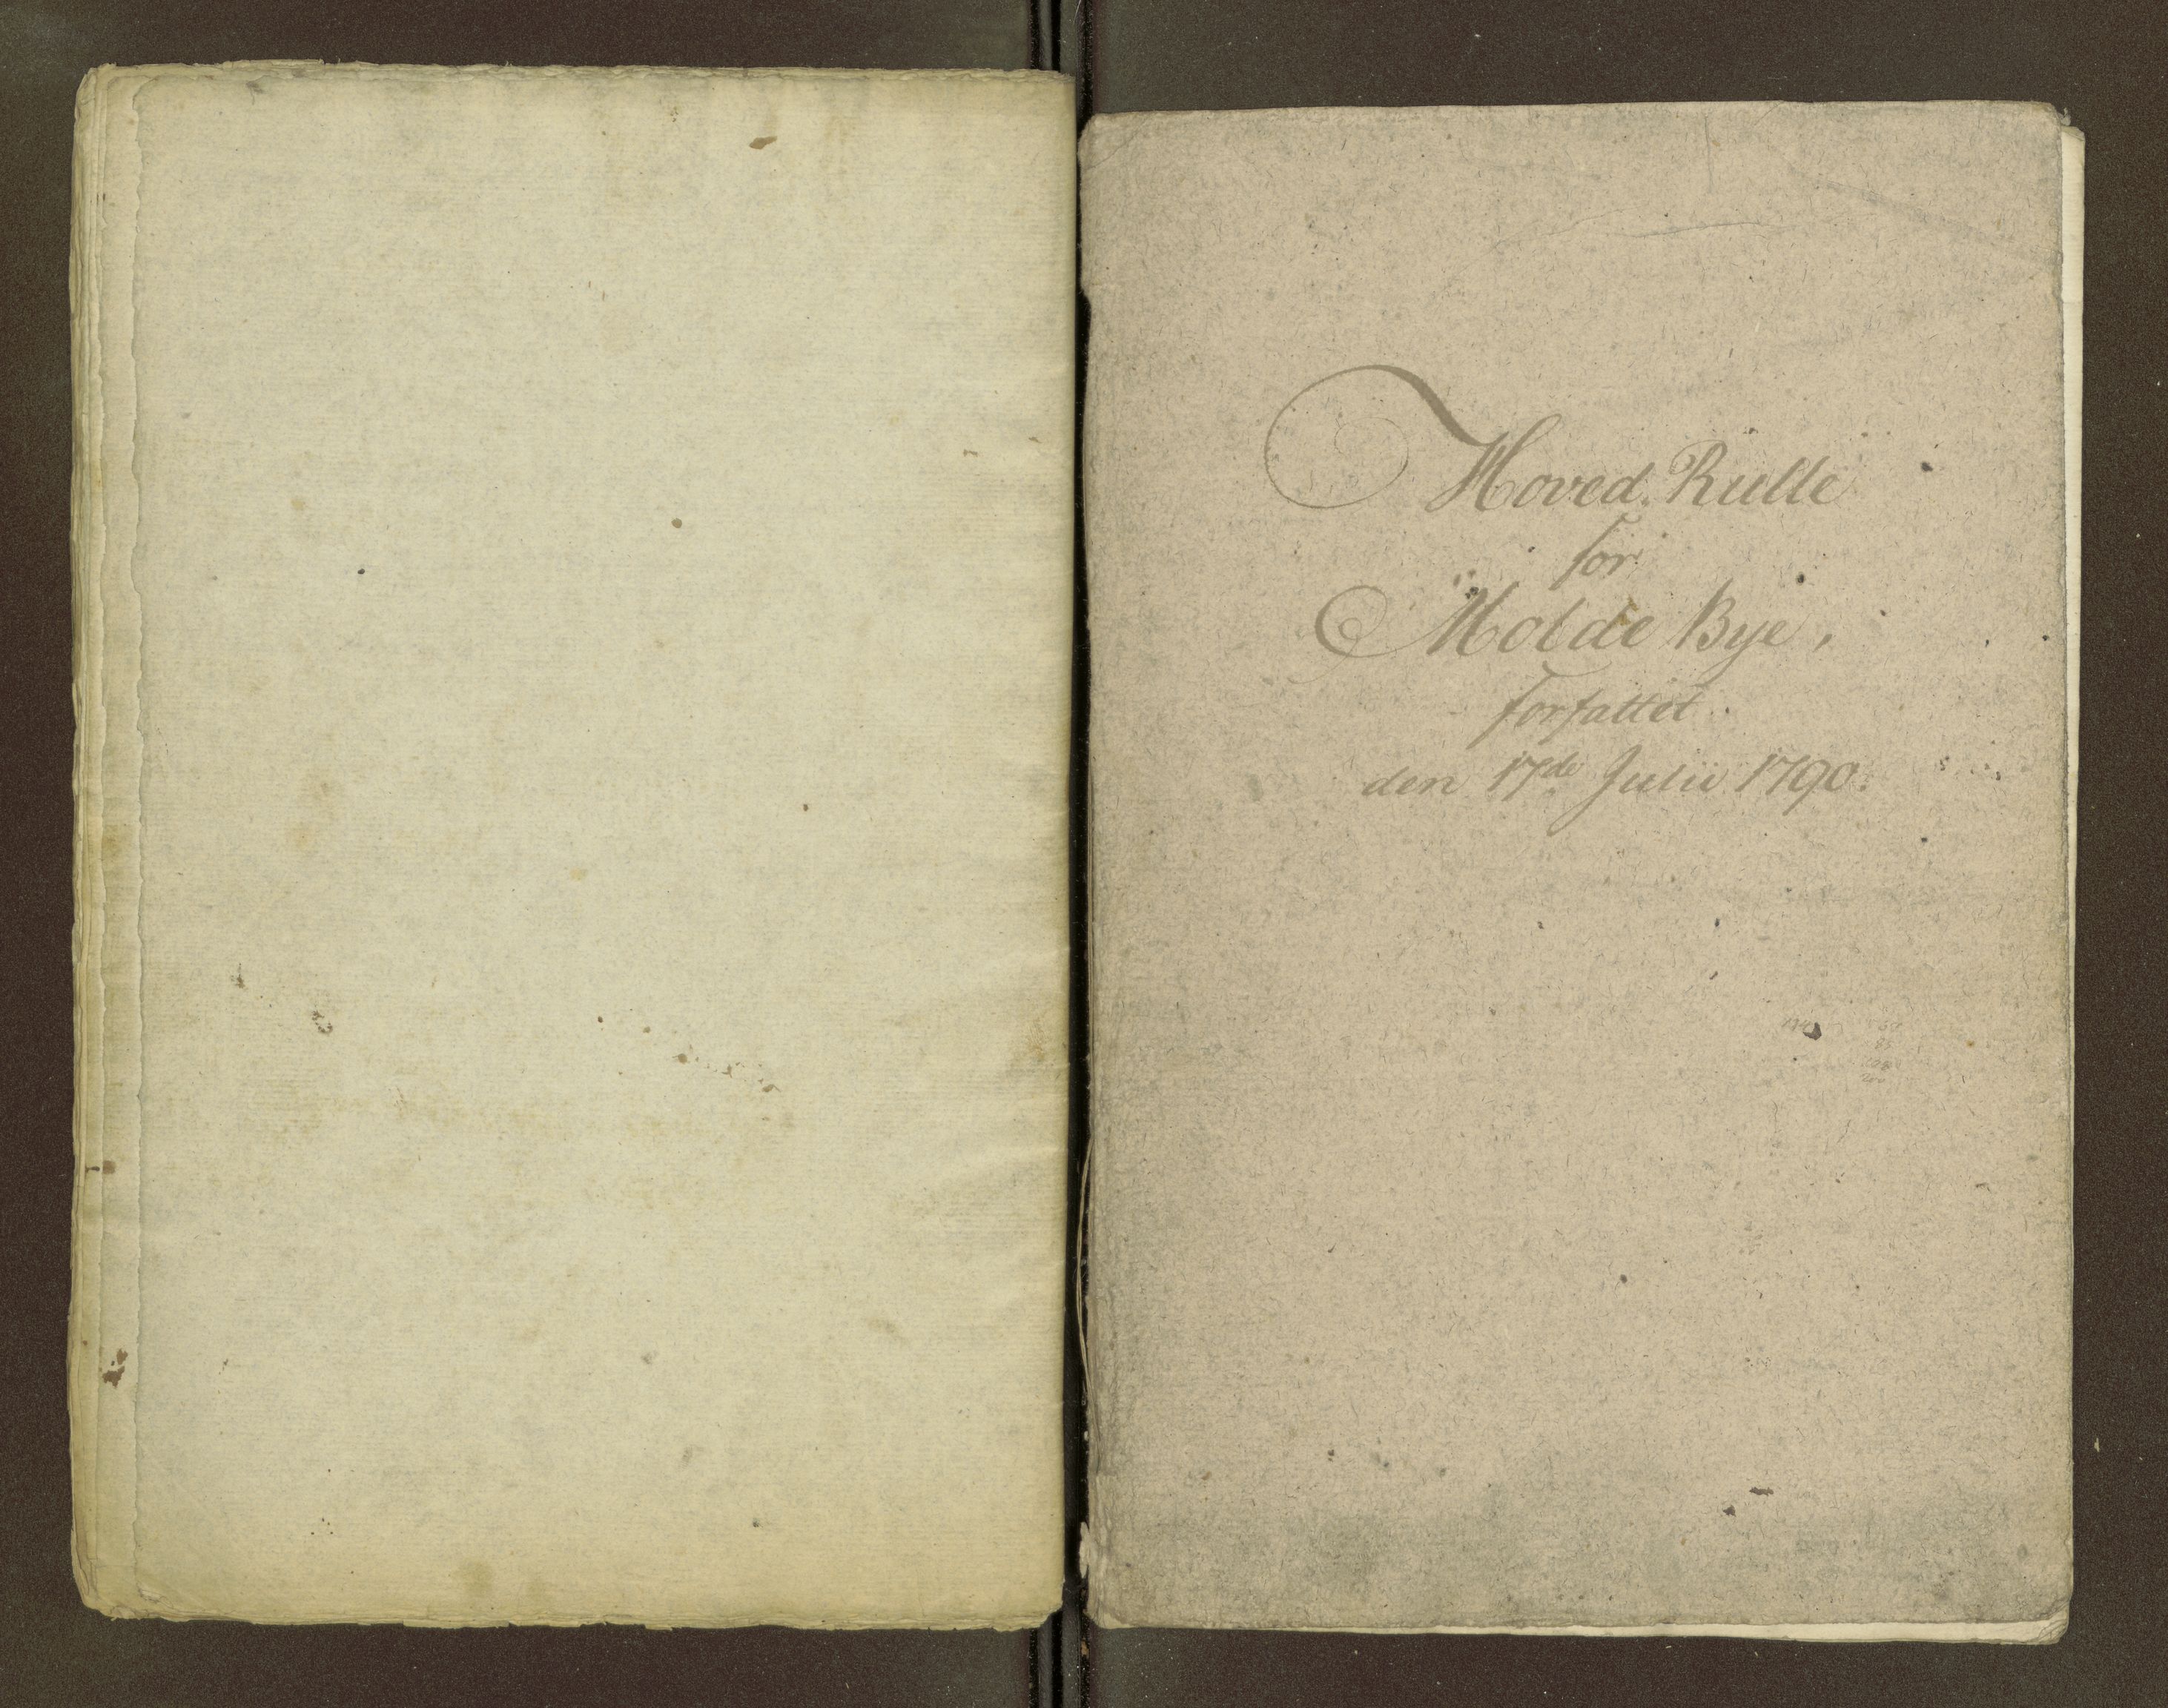 Hoved. Rulle
for
Molde Bye,
forfattet
den 17de Julii 1790.